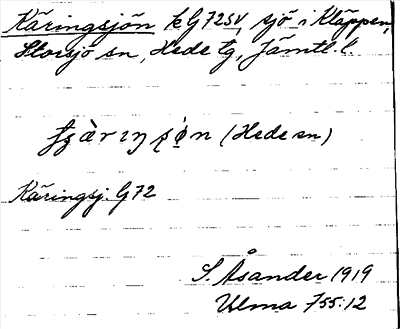 Käringsjön k G72SV, sjö i Kläppen,
Storsjö sn, Hede tg, Jämtl. l.
(Hede sn)
Käringsj. G72
S Åsander 1919
Ulma 755:12